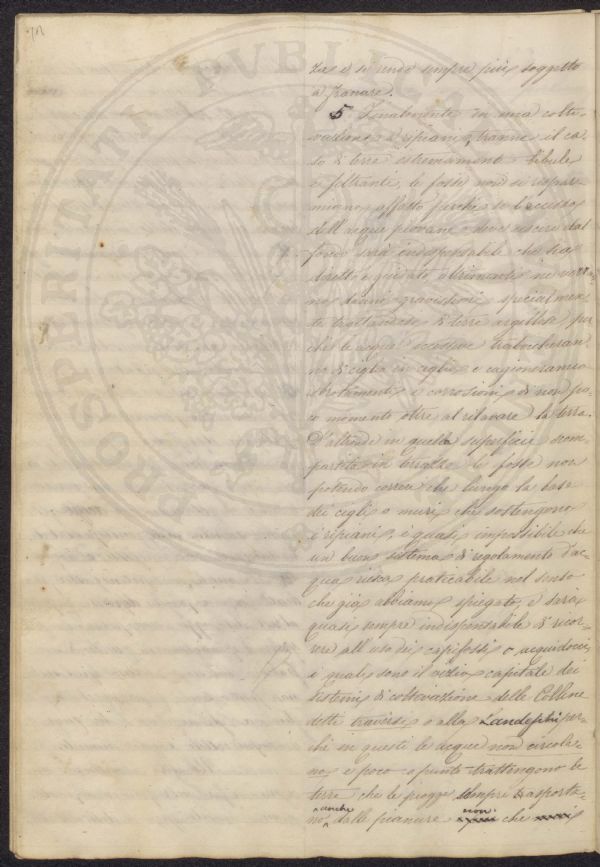 PROSPERITATI PVBLICAE
za e si rende sempre più soggetto
a franare.
5 Finalmente in una colti-
vazione a ripiani, tranne il ca-
so di terre estremamente bibule
e filtranti, le fosse non si rispar-
miano affatto perchè se l'eccesso
dell'acque piovane deve uscire dal
fondo sarà indispensabile che sia
diretto e guidato altrimenti ne var-
no danni gravissimi specialmen-
te trattandosi di terre argillose per
chè le acque eccessive traboccheran-
no di ciglio in ciglio e cagioneranno
sbrotamenti e corrosioni di non po-
co momento oltre al rilavare la terra.
D'altronde in quella superficie scom-
partita in terrazze le fosse non
potendo correre che lungo la base
dei cigli o muri che sostengono
i ripiani, è quasi impossibile che
un buon sistema di regolamento d'ac-
qua riesca praticabile nel senso
che già abbiamo spiegato, e sarà
quasi sempre indispensabile di ricor-
rere all'uso dei capifossi o acquidocci
i quali sono il vizio capitale dei
sistemi di coltivazione delle Colline
dette traverse o alla Landeschi per-
chè in questi le acque non circola-
no e poco o punto trattengono le
terre che le piogge sempre trasporta-
no anche dalle pianure non che